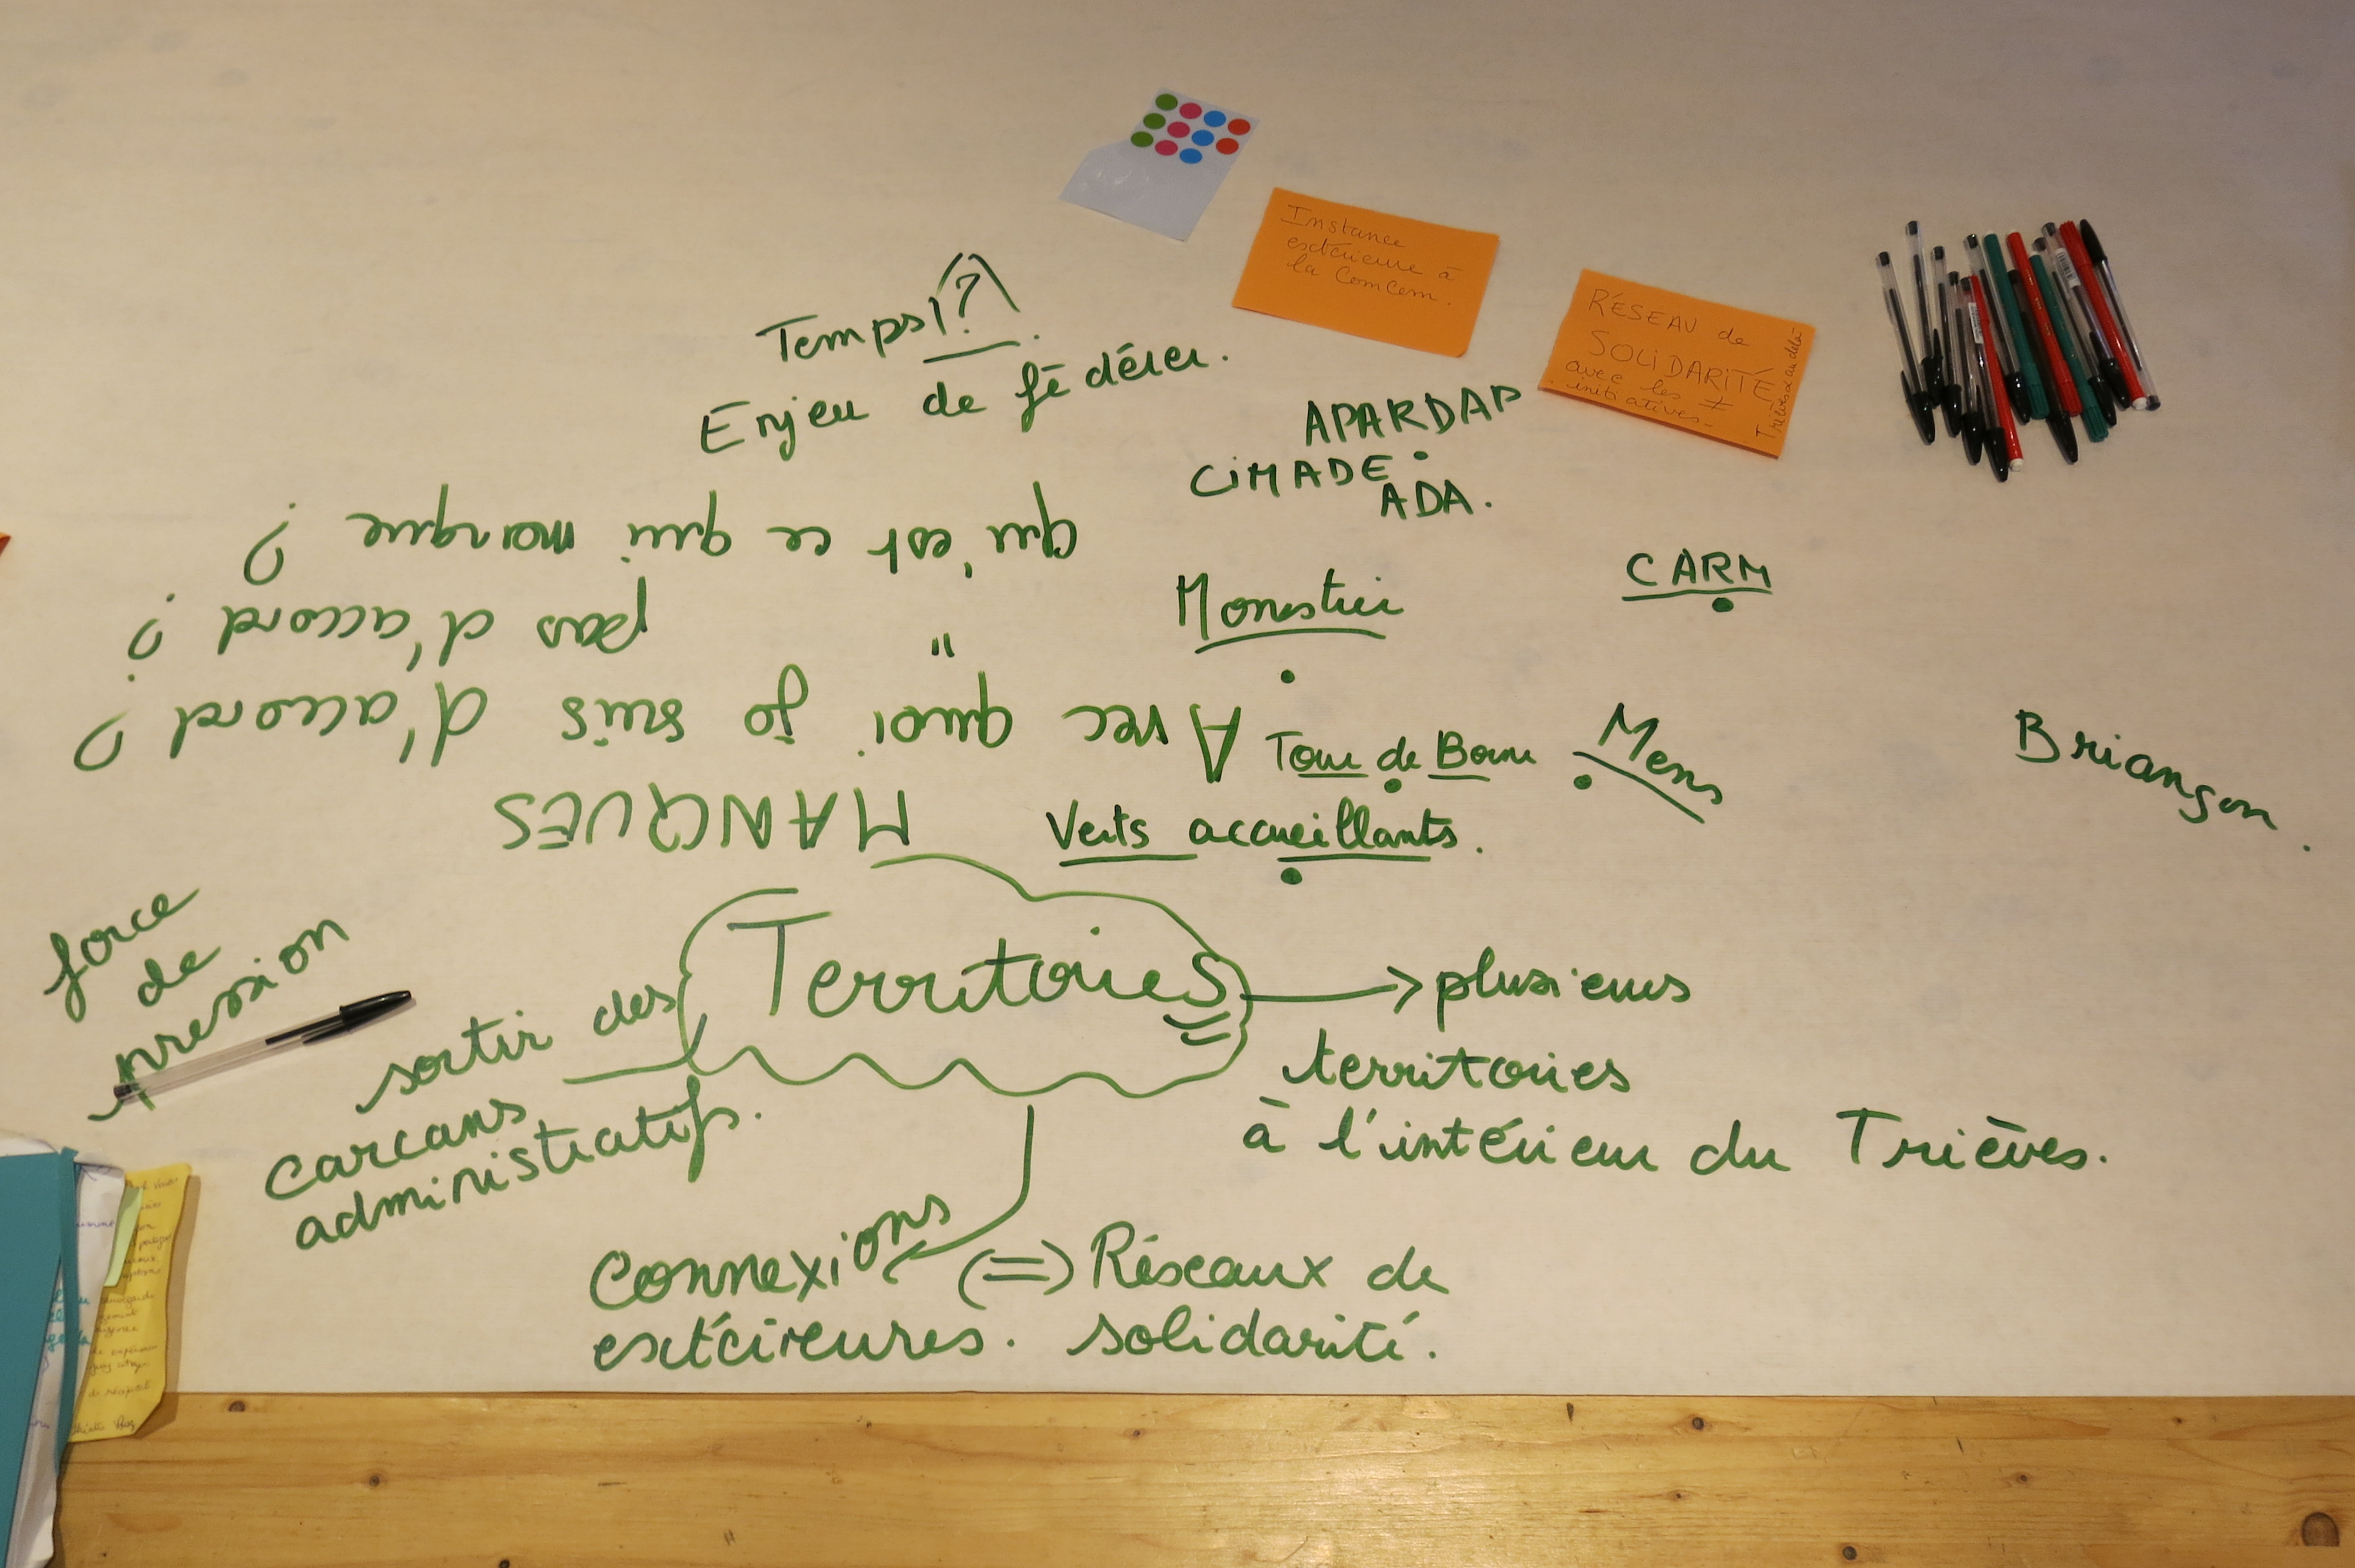 Instance
extérieure à
la ComCom.
RÉSEAU de
SOLIDARITÉ
avec les ≠
initiatives.
Trièves au delà
Temps (?)
Enjeu de fédérer.
APARDAP
CIMADE
ADA.
CARM
Monestier
Tour de Borne
Mens
Briançon.
Verts accueillants.
MANQUES
Avec quoi je suis d'accord ?
" pas d'accord ?
qu'est ce qui manque ?
force
de
pression
sortir des
carcans
administratifs.
Territoires
plusieurs
territoires
à l'intérieur du Trièves.
Connexions (=) Réseaux de
extérieures. solidarité.